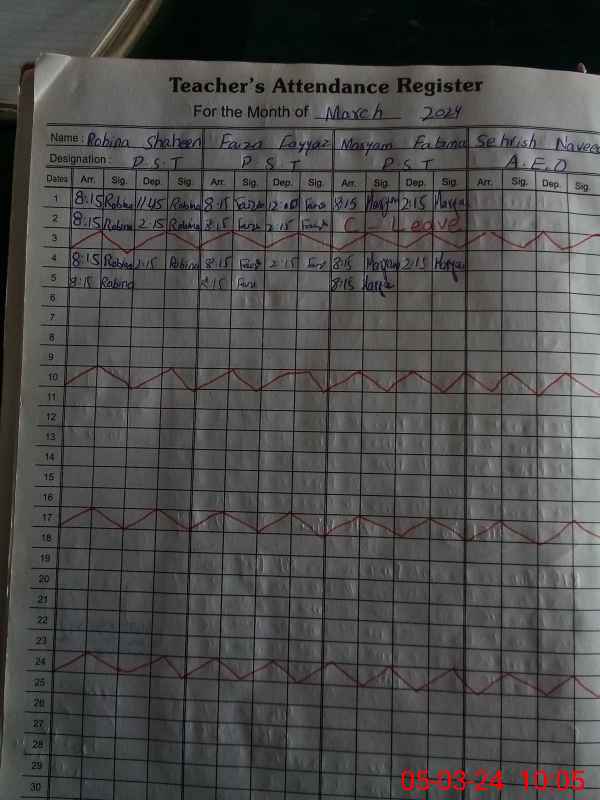 Teacher's Attendance Register
For the Month of March 2024
Name : Robina Shaheen Faiza Fayyaz Maryam Fatima Sehrish Naveed
Designation : P.S.T P.S.T P.S.T A.E.O
Dates Arr. Sig. Dep. Sig. Arr. Sig. Dep. Sig. Arr. Sig. Dep. Sig. Arr. Sig. Dep. Sig.
1 8:15 Robina 11:45 Robina 8:15 8:15 Maryam 2:15 Maryam
2 8:15 Robina 2:15 Robina 8:15 2:15 C - Leave
3
4 8:15 Robina 2:15 Robina 8:15 2:15 8:15 Maryam 2:15 Maryam
5 8:15 Robina 8:15 8:15 Maryam
6
7
8
9
10
11
12
13
14
15
16
17
18
19
20
21
22
23
24
25
26
27
28
29
30
05-03-24 10:05